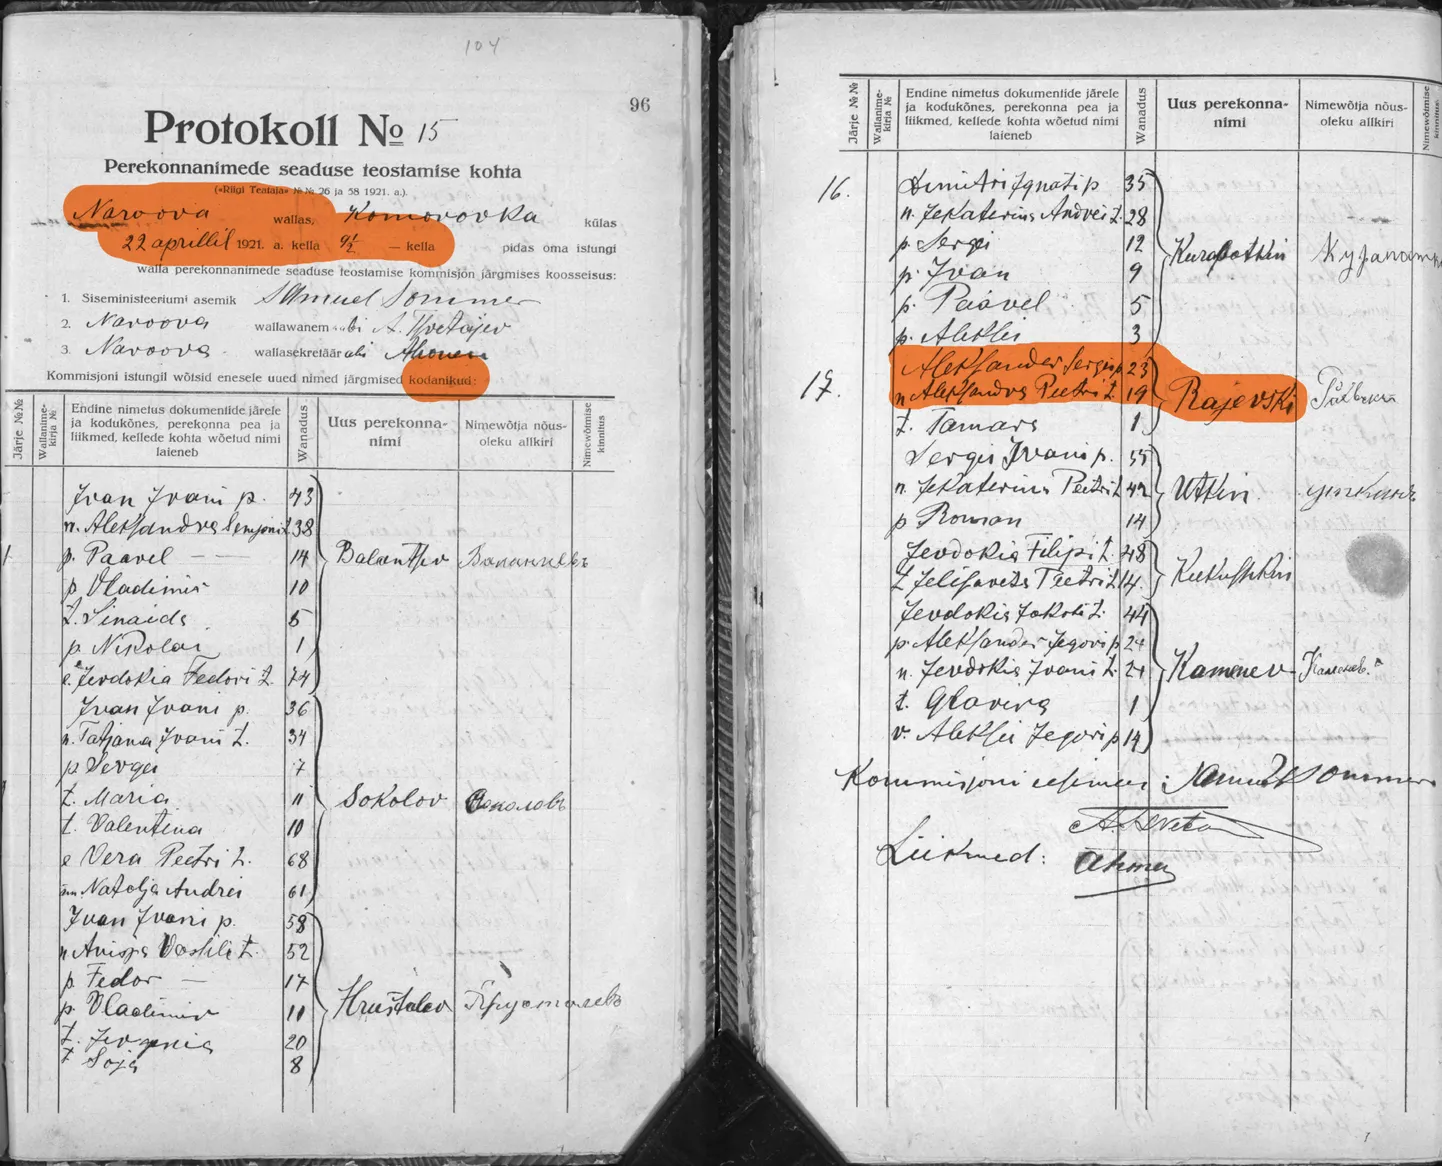 104
96
Protokoll № 15
Perekonnanimede seaduse teostamise kohta
(«Riigi Teataja» №№ 26 ja 58 1921. a.).
Naroova wallas, Komorovka külas
22 aprillil 1921. a. kella 9½ — kella pidas oma istungi
walla perekonnanimede seaduse teostamise kommisjon järgmises koosseisus:
1. Siseministeeriumi asemik Samuel Sommer
2. Naroova wallawanem abi A.
3. Naroova wallasekretäär abi Ahonen
Kommisjoni istungil wõtsid enesele uued nimed järgmised kodanikud:
Järje №№
Wallanime-
kirja №
Endine nimetus dokumentide järele
ja kodukõnes, perekonna pea ja
liikmed, kellede kohta wõetud nimi
laieneb
Wanadus
Uus perekonna-
nimi
Nimewõtja nõus-
oleku allkiri
Nimewõtmise
kinnitus
Ivan Ivani p. 43
n. Aleksandra Semjoni t. 38
1 p. Paavel — — 14 Balantsev
p. Vladimir 10
t. Sinaida 5
p. Nikolai 1
e. Jevdokia Fedori t. 74
Ivan Ivani p. 36
n. Tatjana Ivani t. 34
p. Sergei 7
t. Maria 11 Sokolov Соколовъ
t. Valentina 10
e Vera Peetri t. 68
Natalja Andrei 61
Ivan Ivani p. 58
n Anisja Vasili t. 52
p. Fedor — 17
p. Vladimir 11 Hrustalev Хрусталевъ
t. Jevgenia 20
t Soja 8
Järje №№
Wallanime-
kirja №
Endine nimetus dokumentide järele
ja kodukõnes, perekonna pea ja
liikmed, kellede kohta wõetud nimi
laieneb
Wanadus
Uus perekonna-
nimi
Nimewõtja nõus-
oleku allkiri
Nimewõtmise
kinnitus
16. Dimitri Ignati p 35
n. Jekaterina Andrei t. 28
p. Sergei 12 Kurapotkin
p. Ivan 9
p. Paavel 5
p. Aleksei 3
Aleksander Sergei p. 23
17. n Aleksandra Peetri t. 19 Rajevski
t. Tamara 1
Sergei Ivani p. 55
n. Jekaterina Peetri t. 42 Utkin Уткинъ
p Roman 14
Jevdokia Filipi t. 48
t Jelisaveta Peetri t. 14. Kukushkin
Jevdokia Jakobi t. 44
p. Aleksander Jegori p 24
n. Jevdokia Ivani t. 21 Kamenev Каменевъ
t. Glavira 1
v. Aleksei Jegori p 14
Kommisjoni esimees: Samuel Sommer
Liikmed:
Ahonen